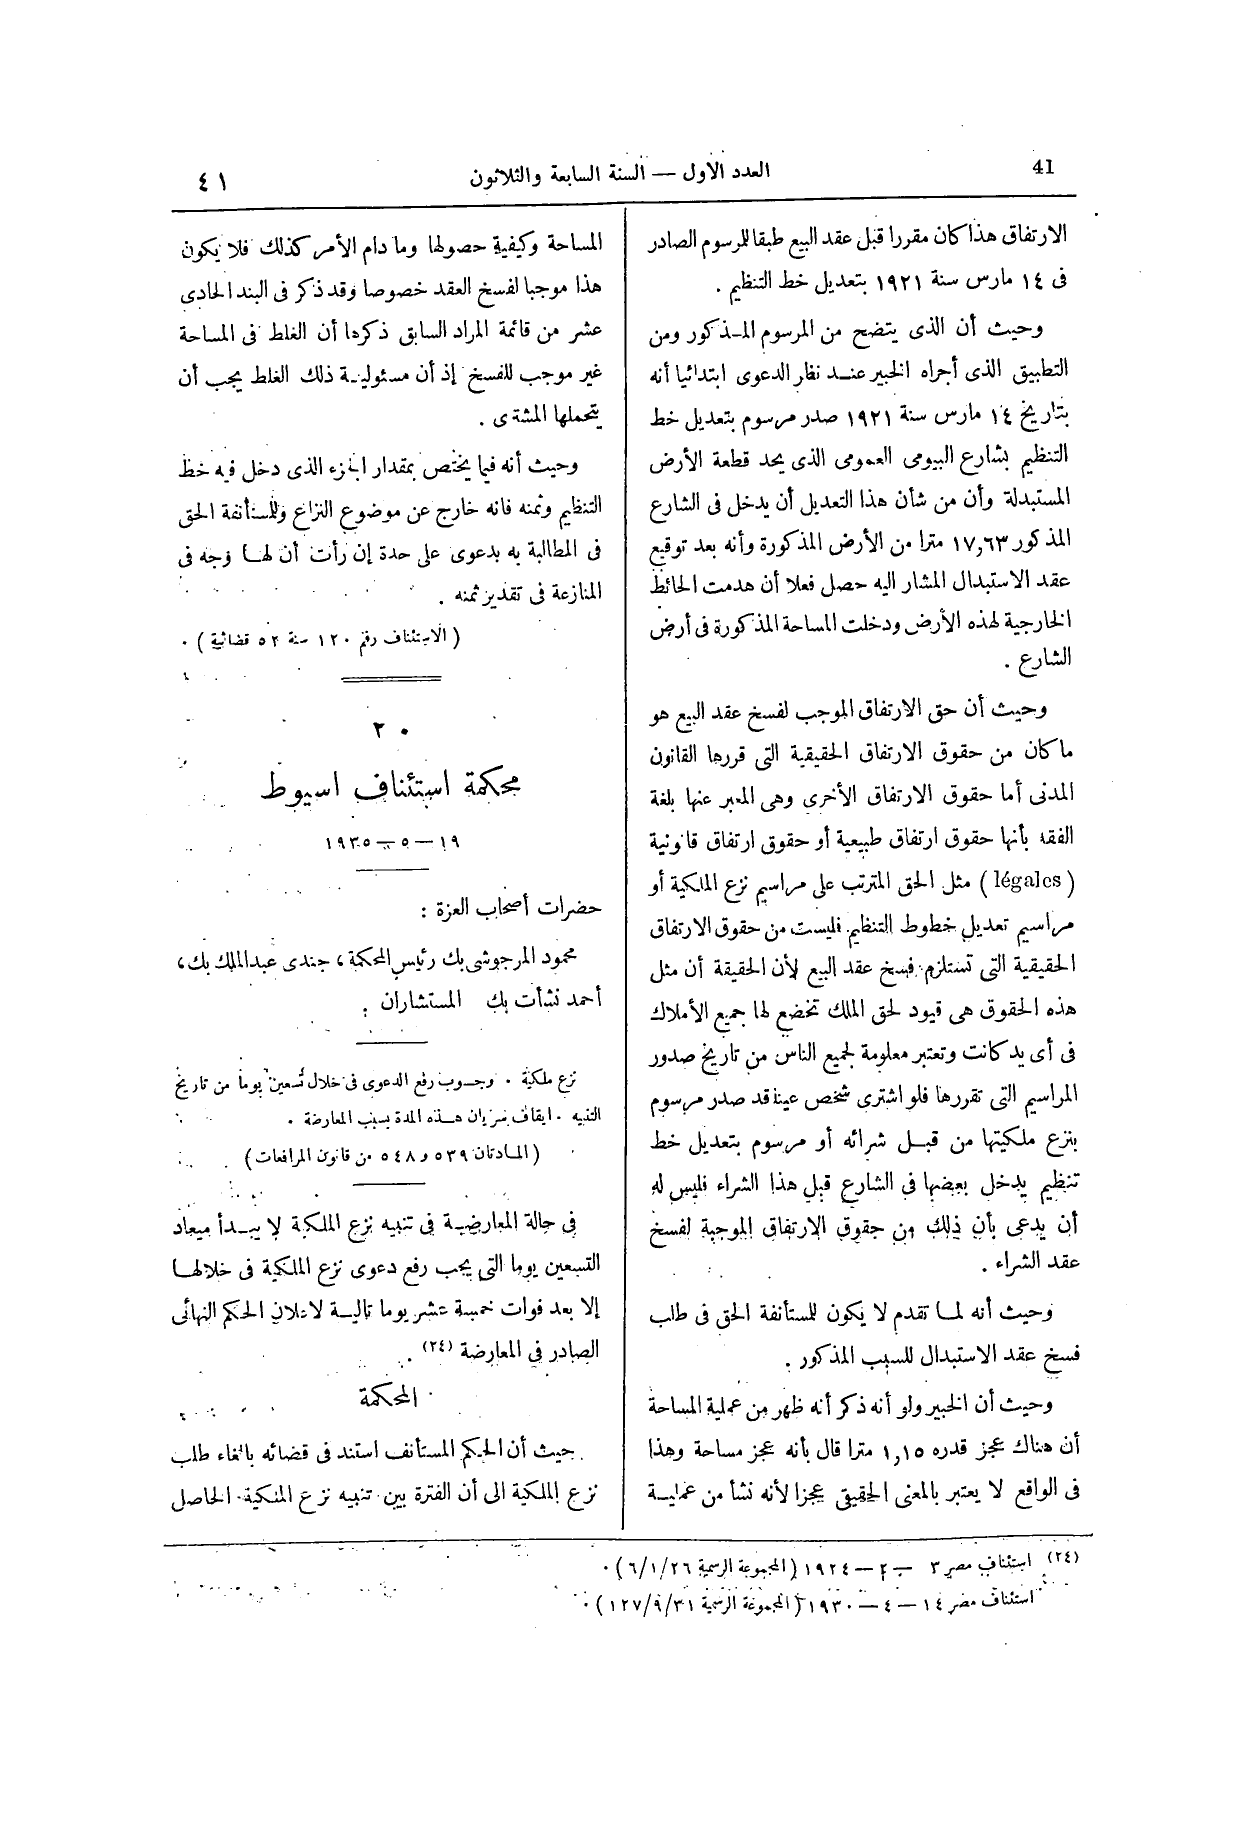 41
العدد الاول — السنة السابعة والثلاثون
٤١
الارتفاق هذا كان مقررا قبل عقد البيع طبقا للمرسوم الصادر
فى ١٤ مارس سنة ١٩٢١ بتعديل خط التنظيم .
وحيث أن الذى يتضح من المرسوم المذكور ومن
التطبيق الذى أجراه الخبير عند نظر الدعوى ابتدائيا أنه
بتاريخ ١٤ مارس سنة ١٩٢١ صدر مرسوم بتعديل خط
التنظيم بشارع البيومى العمومى الذى يحد قطعة الأرض
المستبدلة وأن من شأن هذا التعديل أن يدخل فى الشارع
المذكور ١٧,٦٣ مترا من الأرض المذكورة وأنه بعد توقيع
عقد الاستبدال المشار اليه حصل فعلا أن هدمت الحائط
الخارجية لهذه الأرض ودخلت المساحة المذكورة فى أرض
الشارع .
وحيث أن حق الارتفاق الموجب لفسخ عقد البيع هو
ما كان من حقوق الارتفاق الحقيقية التى قررها القانون
المدنى أما حقوق الارتفاق الأخرى وهى المعبر عنها بلغة
الفقه بأنها حقوق ارتفاق طبيعية أو حقوق ارتفاق قانونية
(légales) مثل الحق المترتب على مراسيم نزع الملكية أو
مراسيم تعديل خطوط التنظيم فليست من حقوق الارتفاق
الحقيقية التى تستلزم فسخ عقد البيع لأن الحقيقة أن مثل
هذه الحقوق هى قيود لحق الملك تخضع لها جميع الأملاك
فى أى يد كانت وتعتبر معلومة لجميع الناس من تاريخ صدور
المراسيم التى تقررها فلو اشترى شخص عينا قد صدر مرسوم
بنزع ملكيتها من قبل شرائه أو مرسوم بتعديل خط
تنظيم يدخل بعضها فى الشارع قبل هذا الشراء فليس له
أن يدعى بأن ذلك من حقوق الارتفاق الموجبة لفسخ
عقد الشراء .
وحيث أنه لما تقدم لا يكون للمستأنفة الحق فى طلب
فسخ عقد الاستبدال للسبب المذكور .
وحيث أن الخبير ولو أنه ذكر أنه ظهر من عملية المساحة
أن هناك عجز قدره ١,١٥ مترا قال بأنه عجز مساحة وهذا
فى الواقع لا يعتبر بالمعنى الحقيقى عجزا لأنه نشأ من عملية
المساحة وكيفية حصولها وما دام الأمر كذلك فلا يكون
هذا موجبا لفسخ العقد خصوصا وقد ذكر فى البند الحادى
عشر من قائمة المراد السابق ذكرها أن الغلط فى المساحة
غير موجب للفسخ إذ أن مسئولية ذلك الغلط يجب أن
يتحملها المشترى .
وحيث أنه فيما يختص بمقدار الجزء الذى دخل فيه خط
التنظيم وثمنه فانه خارج عن موضوع النزاع وللمستأنفة الحق
فى المطالبة به بدعوى على حدة إن رأت أن لها وجه فى
المنازعة فى تقدير ثمنه .
( الاستئناف رقم ١٢٠ سنة ٥٢ قضائية ) .
٢٠
محكمة استئناف اسيوط
١٩ — ٥ — ١٩٣٥
حضرات أصحاب العزة :
محمود المرجوشى بك رئيس المحكمة ، جندى عبد الملك بك ،
أحمد نشأت بك المستشاران .
نزع ملكية . وجوب رفع الدعوى فى خلال تسعين يوما من تاريخ
التنبيه . ايقاف سريان هذه المدة بسبب المعارضة .
( المادتان ٥٣٩ و ٥٤٨ من قانون المرافعات )
فى حالة المعارضة فى تنبيه نزع الملكية لا يبدأ ميعاد
التسعين يوما التى يجب رفع دعوى نزع الملكية فى خلالها
إلا بعد فوات خمسة عشر يوما تالية لاعلان الحكم النهائى
الصادر فى المعارضة (٢٤) .
المحكمة
حيث أن الحكم المستأنف استند فى قضائه بالغاء طلب
نزع الملكية الى أن الفترة بين تنبيه نزع الملكية الحاصل
(٢٤) استئناف مصر ٣ — ٢ — ١٩٢٤ (المجموعة الرسمية ٦/١/٢٦) .
استئناف مصر ١٤ — ٤ — ١٩٣٠ (المجموعة الرسمية ١٢٧/٩/٣١) .